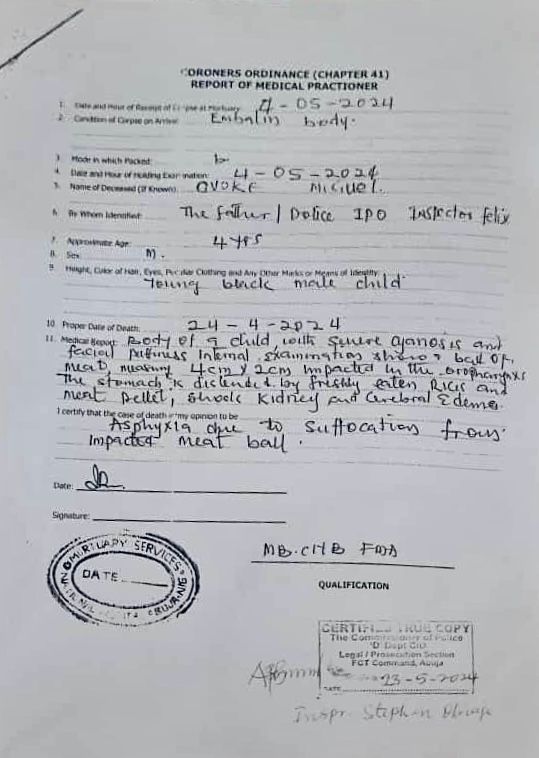 CORONERS ORDINANCE (CHAPTER 41)
REPORT OF MEDICAL PRACTIONER
1. Date and Hour of Receipt of Corpse at Mortuary: 4-05-2024
2. Condition of Corpse on Arrival: Embalm body.
3. Mode in which Packed:
4. Date and Hour of Holding Examination: 4-05-2024
5. Name of Deceased (If Known): OVOKE Miguel.
6. By Whom Identified: The father / Police IPO Inspector felix
7. Approximate Age: 4 yrs
8. Sex: M.
9. Height, Color of Hair, Eyes, Peculiar Clothing and Any Other Marks or Means of Identity:
Young black male child
10. Proper Date of Death: 24-4-2024
11. Medical Report: Body of a child with severe cyanosis and
facial puffiness Internal examination shows ball of
meat, measuring 4cm x 2cm impacted in the oropharynxs
The stomach is distended by freshly eaten Rice and
meat pellet, shock kidney and cerebral Edema.
I certify that the case of death in my opinion to be
Asphyxia due to suffocation from
Impacted meat ball.
Date:
Signature:
MORTUARY SERVICES
DATE
MB.CHB
QUALIFICATION
CERTIFIED TRUE COPY
The Commissioner of Police
'D' Dept CID
Legal / Prosecution Section
FCT Command, Abuja
DATE 23-5-2024
Inspr. Stephen